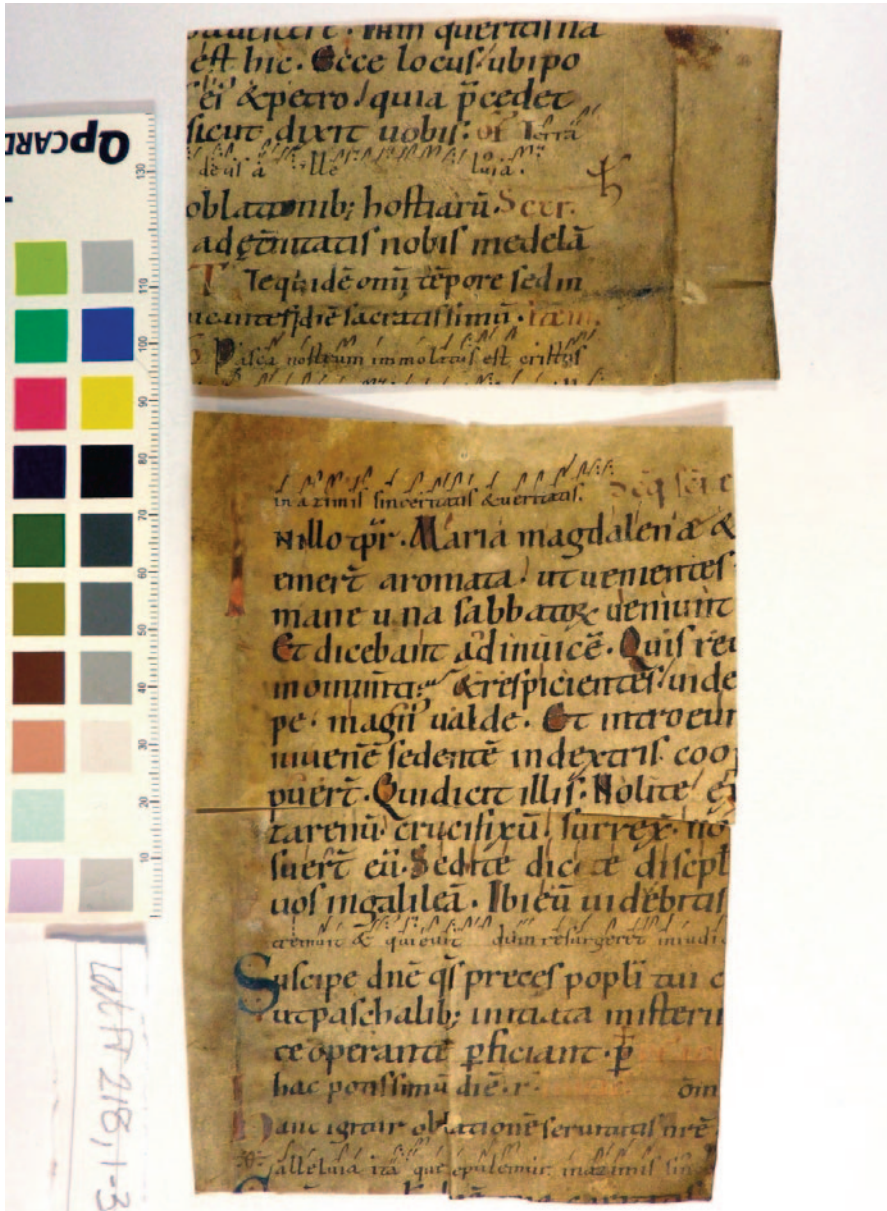 est hic. Ecce locus ubi po
ei & petro quia p̄cedet
sicut dixit uobis. oƒ Terra
deus alleluia.
oblationib; hostiarū. Secr.
ad ęt̄nitatis nobis medelā
Te quidē omī tēpore sed in
diē sacratissimū. itē
Pasca nostrum immolatus est cristus
in azimis sinceritatis & ueritatis.
N illo tp̄r. Maria magdalenæ &
emer̄t aromata ut uenientes
mane una sabbatoꝝ ueniunt
Et dicebant ad inuicē. Quis re
monum̄ti & respicientes uide
pe. magn' ualde. Et introeun
iuuenē sedentē in dextris coo
puer̄t. Qui dicit illis. Nolite ex
tarenū crucifixū. surrex. nō
suer̄t eū. Sed ite dicite discipl
uos in galileā. Ibi eū uidebitis
tremuit & quieuit dum resurgeret in iudi
Suscipe dn̄e q̄s preces popl̄i tui c
ut paschalib; initiata misterii
te operante p̄ficiant. p̄
hac potissimū diē. r̄. om̄
Hanc igitur oblationē seruitutis nr̄ē
alleluia ita que epulemur in azimis sin
QPCARD
130
110
100
90
80
70
60
50
40
30
20
10
Lat fr 218, 1-3